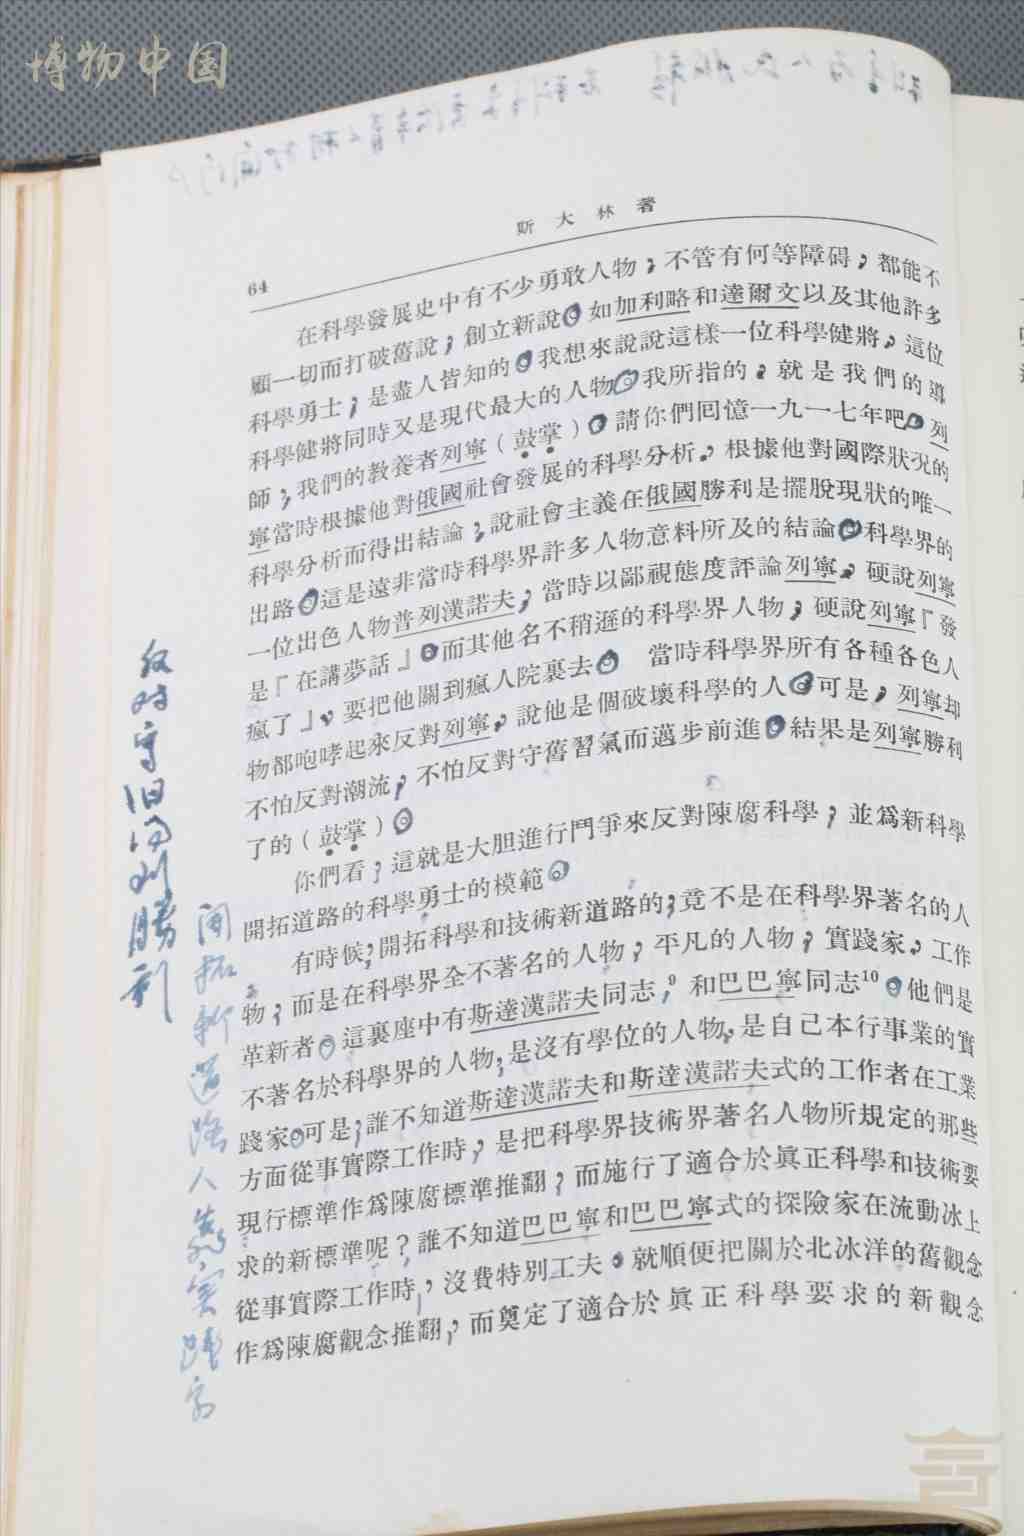 博物中国
斯大林著
64
在科學發展史中有不少勇敢人物，不管有何等障碍，都能不
顧一切而打破舊說，創立新說。如加利略和達爾文以及其他許多
科學勇士，是盡人皆知的。我想來說說這樣一位科學健將，這位
科學健將同時又是現代最大的人物。我所指的，就是我們的導
師，我們的教養者列寧（鼓掌）。請你們囘憶一九一七年吧。列
寧當時根據他對俄國社會發展的科學分析，根據他對國際狀况的
科學分析而得出結論，說社會主義在俄國勝利是擺脫現狀的唯一
出路。這是遠非當時科學界許多人物意料所及的結論。科學界的
一位出色人物普列漢諾夫，當時以鄙視態度評論列寧，硬說列寧
是『在講夢話』。而其他名不稍遜的科學界人物，硬說列寧『發
瘋了』，要把他關到瘋人院裏去。當時科學界所有各種各色人
物都咆哮起來反對列寧，說他是個破壞科學的人。可是，列寧却
不怕反對潮流，不怕反對守舊習氣而邁步前進。結果是列寧勝利
了的（鼓掌）。
你們看，這就是大胆進行鬥爭來反對陳腐科學，並爲新科學
開拓道路的科學勇士的模範。
有時候，開拓科學和技術新道路的，竟不是在科學界著名的人
物，而是在科學界全不著名的人物，平凡的人物，實踐家，工作
革新者。這裏座中有斯達漢諾夫同志，⁹和巴巴寧同志¹⁰。他們是
不著名於科學界的人物，是沒有學位的人物，是自己本行事業的實
踐家。可是，誰不知道斯達漢諾夫和斯達漢諾夫式的工作者在工業
方面從事實際工作時，是把科學界技術界著名人物所規定的那些
現行標準作爲陳腐標準推翻，而施行了適合於眞正科學和技術要
求的新標準呢？誰不知道巴巴寧和巴巴寧式的探險家在流動冰上
從事實際工作時，沒費特別工夫，就順便把關於北冰洋的舊觀念
作爲陳腐觀念推翻，而奠定了適合於眞正科學要求的新觀念
反对守旧得到勝利
開拓新道路人為实踐家